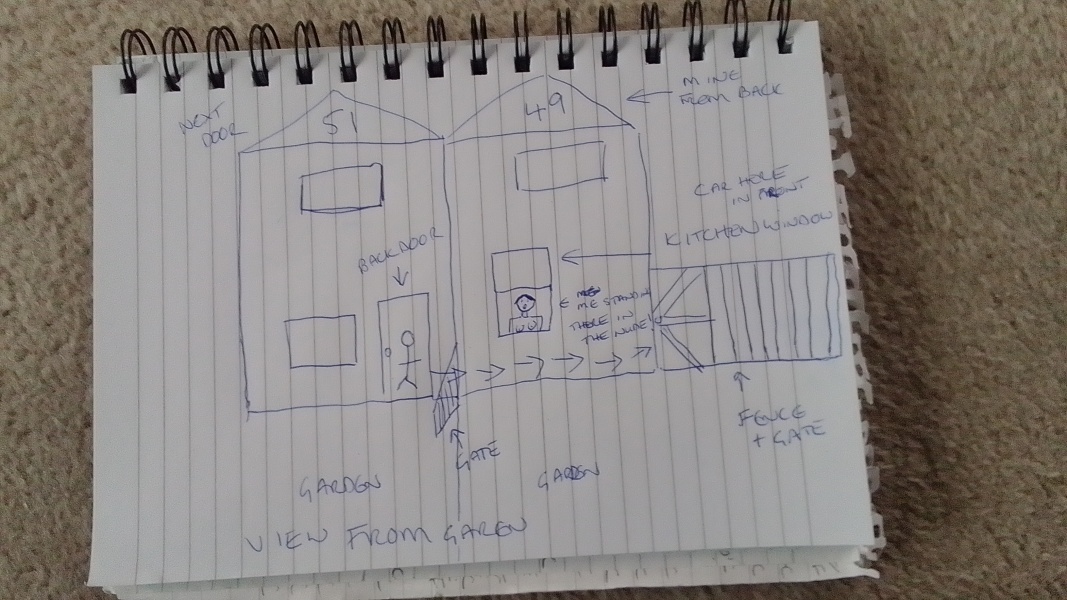 NEXT
DOOR
51
49
← MINE
FROM BACK
CAR HOLE
IN FRONT
KITCHEN WINDOW
BACK DOOR
ME STANDIN
THERE IN
THE NUDE
GATE
FENCE
+ GATE
GARDEN
GARDEN
VIEW FROM GAREN